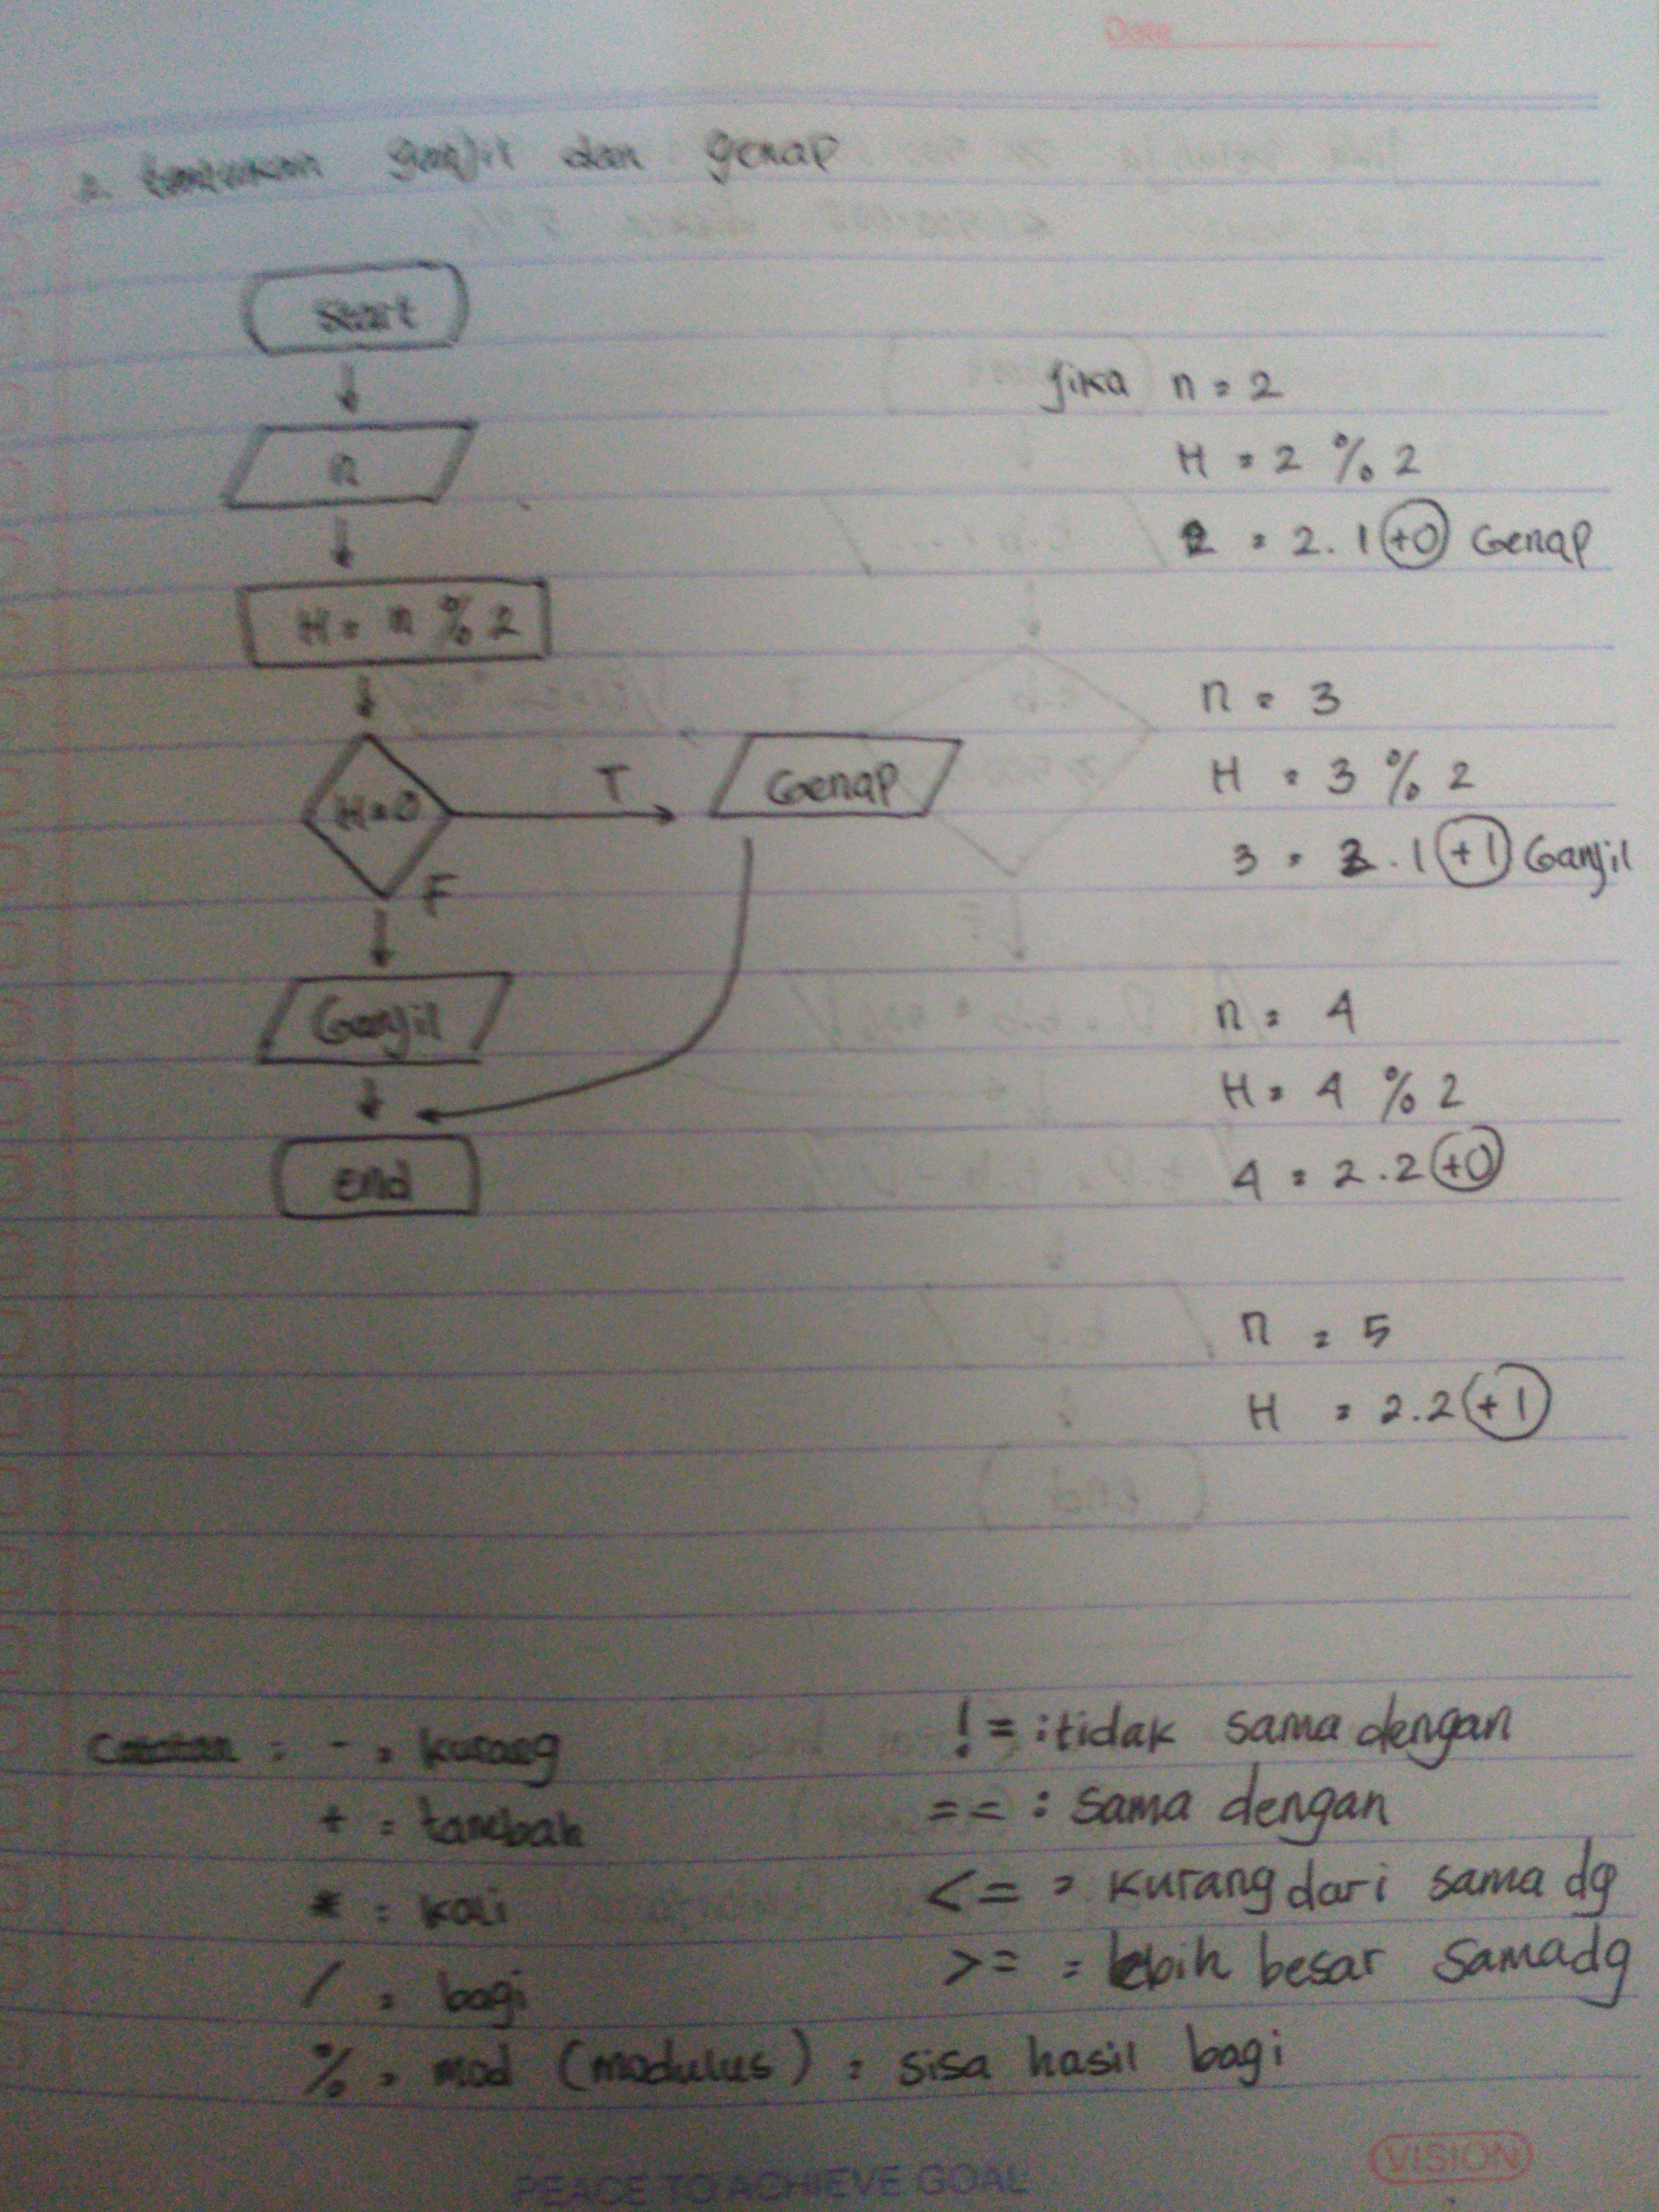 Date
tentukan ganjil dan genap
Start
n
H = n % 2
H=0
T
Genap
F
Ganjil
end
jika n = 2
H = 2 % 2
2 = 2.1 +0 Genap
n = 3
H = 3 % 2
3 = 2.1 +1 Ganjil
n = 4
H = 4 % 2
4 = 2.2 +0
n = 5
H = 2.2 +1
: - = kurang
+ = tambah
* = kali
/ = bagi
% = mod (modulus) = sisa hasil bagi
!= : tidak sama dengan
== : sama dengan
<= = kurang dari sama dg
>= = lebih besar sama dg
VISION
PEACE TO ACHIEVE GOAL